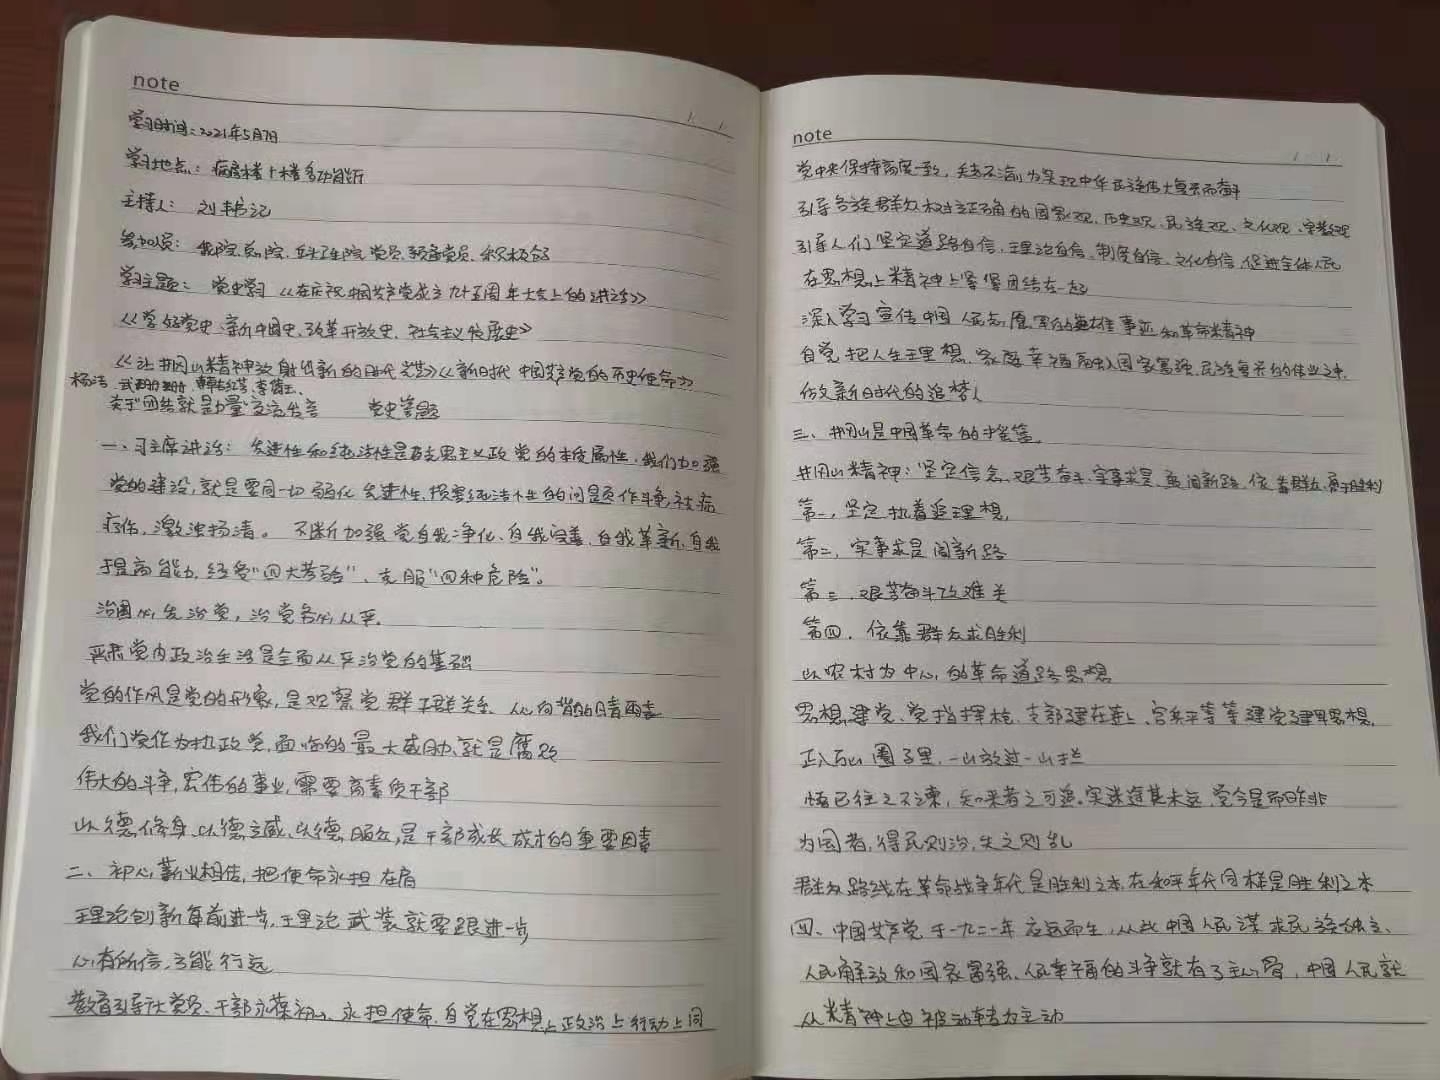 note
学习时间：2021年5月7日
学习地点：病房楼十楼多功能厅
主持人：刘书记
参加人员：我院、总院、 院党员、预备党员、积极分子
学习主题：党史学习《在庆祝中国共产党成立九十五周年大会上的讲话》
《学好党史、新中国史、改革开放史、社会主义发展史》
《让井冈山精神放射出新的时代光芒》《新时代中国共产党的历史使命》
杨洁、
关于"团结就是力量"交流发言 党史答题
一、习主席讲话：先进性和纯洁性是马克思主义政党的本质属性，我们加强
党的建设，就是要同一切弱化先进性、损害纯洁性的问题作斗争，祛病
疗伤，激浊扬清。不断加强党自我净化、自我完善、自我革新、自我
提高能力，经受"四大考验"、克服"四种危险"。
治国必先治党，治党务必从严。
严肃党内政治生活是全面从严治党的基础
党的作风是党的形象，是观察党群干群关系、人心向背的晴雨表
我们党作为执政党，面临的最大威胁就是腐败
伟大的斗争，宏伟的事业，需要高素质干部
以德修身、以德立威、以德服众，是干部成长成才的重要因素
二、初心薪火相传，把使命永担在肩
理论创新每前进一步，理论武装就要跟进一步
心有所信，方能行远
教育引导 党员、干部永葆初心、永担使命，自觉在思想上政治上行动上同
note
党中央保持高度一致，矢志不渝为实现中华民族伟大复兴而奋斗
引导各族群众树立正确的国家观、历史观、民族观、文化观、宗教观
引导人们坚定道路自信、理论自信、制度自信、文化自信，促进全体人民
在思想上精神上紧紧团结在一起
深入学习宣传中国人民志愿军的英雄事迹和革命精神
自觉把人生理想、家庭幸福融入国家富强、民族复兴的伟业之中，
做新时代的追梦人
三、井冈山是中国革命的摇篮。
井冈山精神：坚定信念、艰苦奋斗、实事求是、敢闯新路、依靠群众、勇于胜利
第一，坚定执着追理想，
第二，实事求是闯新路
第三，艰苦奋斗攻难关
第四，依靠群众求胜利
以农村为中心的革命道路思想
思想建党、党指挥枪、支部建在连上、官兵平等等建党建军思想，
正入万山圈子里，一山放过一山拦
悟已往之不谏，知来者之可追。实迷途其未远，觉今是而昨非
为国者，得民则治，失之则乱
群众路线在革命战争年代是胜利之本，在和平年代同样是胜利之本
四、中国共产党于一九二一年应运而生，从此中国人民谋求民族独立、
人民解放和国家富强、人民幸福的斗争就有了主心骨，中国人民就
从精神上由被动转为主动